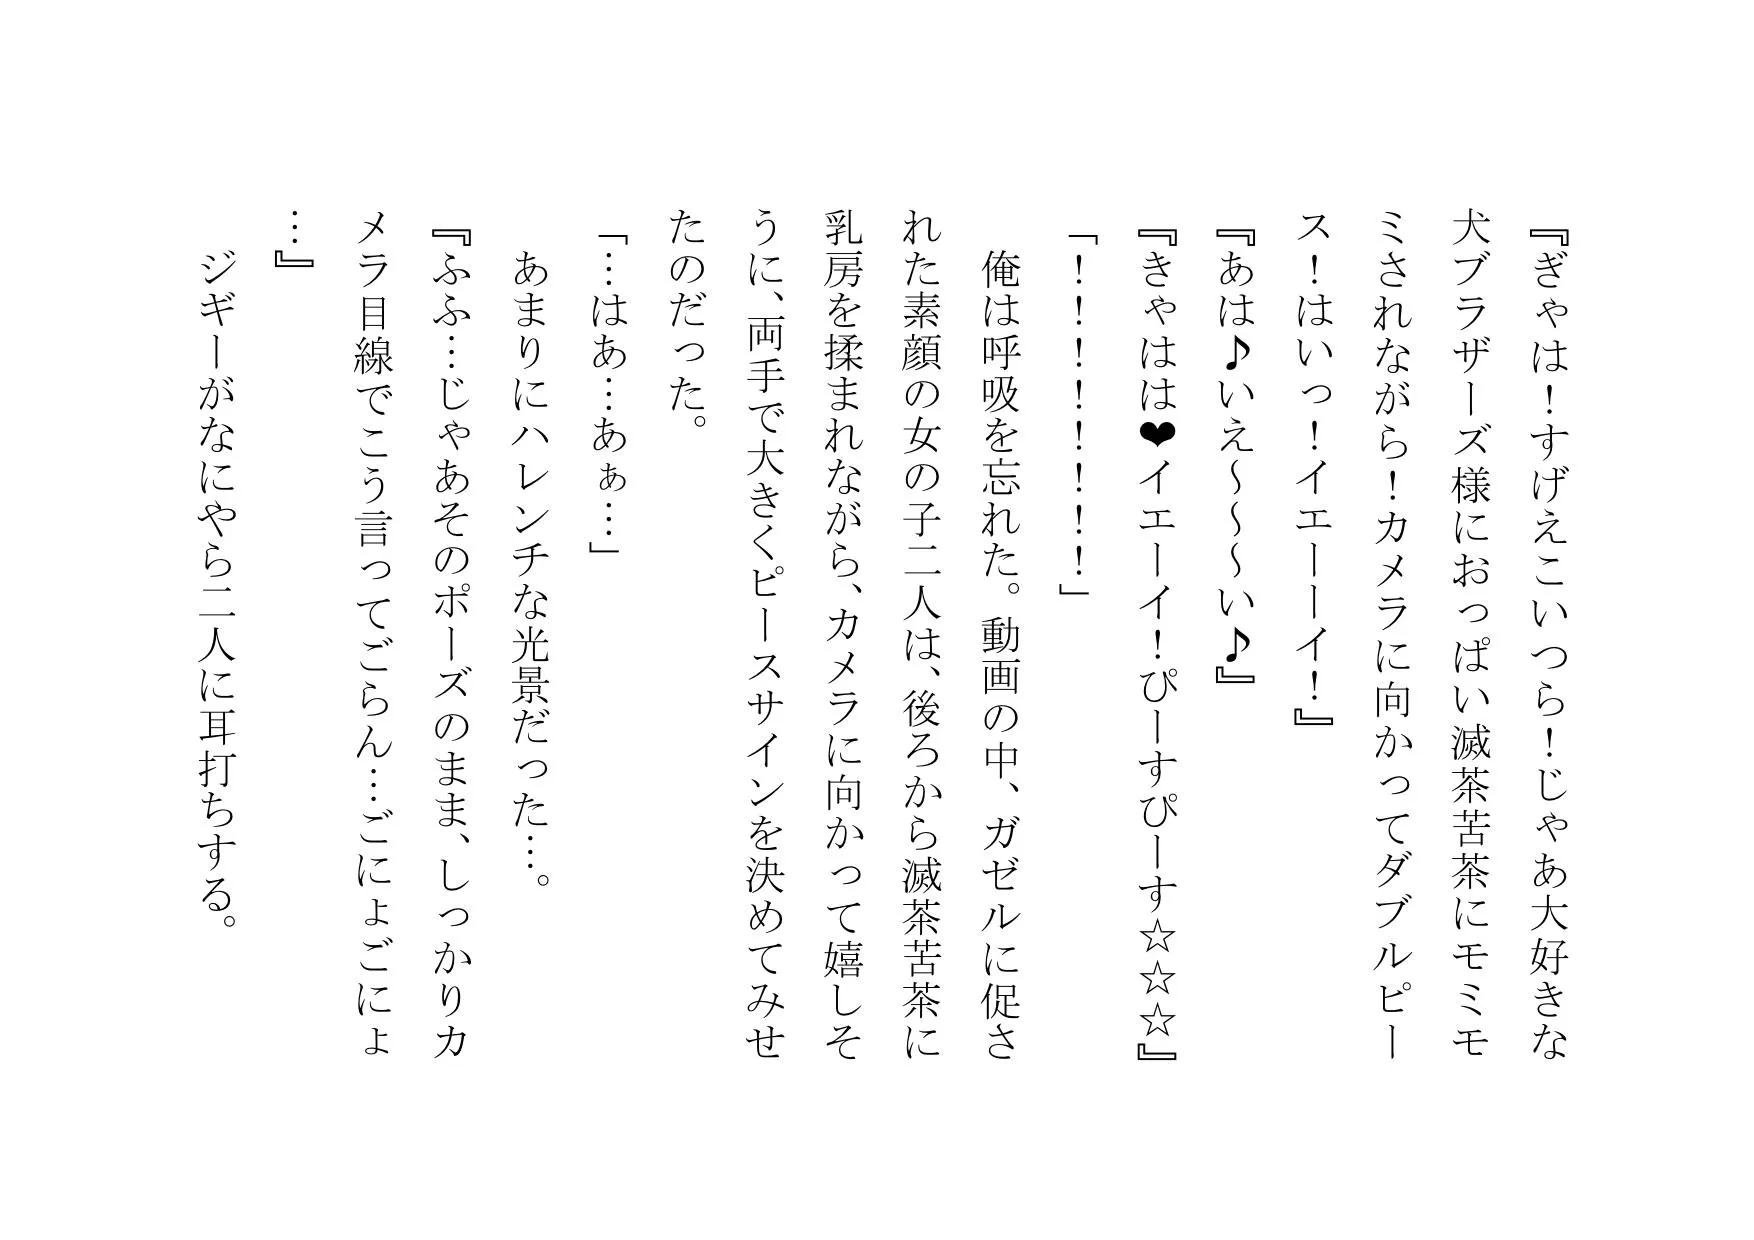 『ぎゃは！すげえこいつら！じゃあ大好きな
犬ブラザーズ様におっぱい滅茶苦茶にモミモ
ミされながら！カメラに向かってダブルピー
ス！はいっ！イエーーイ！』
『あは♪いえ～～～い♪』
『きゃはは❤イエーイ！ぴーすぴーす☆☆☆』
「！！！！！！！！」
　俺は呼吸を忘れた。動画の中、ガゼルに促さ
れた素顔の女の子二人は、後ろから滅茶苦茶に
乳房を揉まれながら、カメラに向かって嬉しそ
うに、両手で大きくピースサインを決めてみせ
たのだった。
「…はあ…あぁ…」
　あまりにハレンチな光景だった…。
『ふふ…じゃあそのポーズのまま、しっかりカ
メラ目線でこう言ってごらん…ごにょごにょ
…』
　ジギーがなにやら二人に耳打ちする。